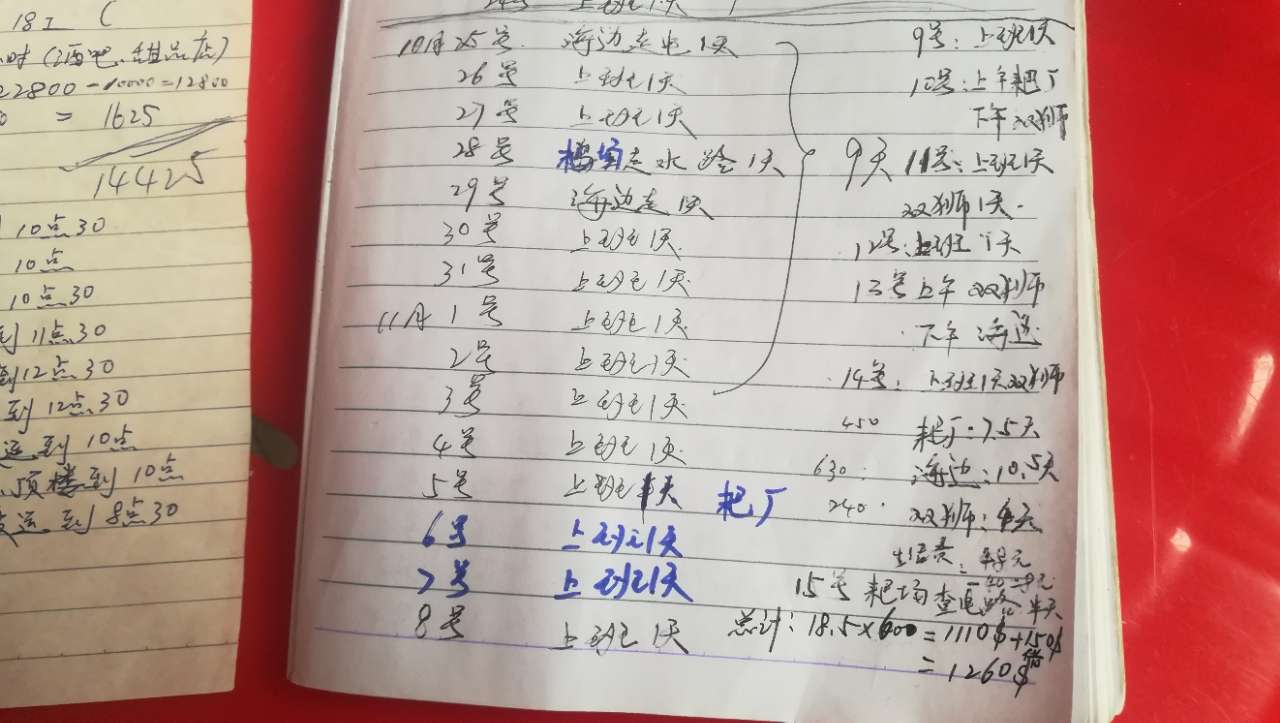 18工 (
时(酒吧、甜品店)
22800-10000=12800
0 = 1625
14425
10点30
10点
10点30
到11点30
到12点30
到12点30
到10点
顶楼到10点
到8点30
上班1天
10月25号 海边走电1天
26号 上班1天
27号 上班1天
28号 走水路1天
29号 海边走1天
30号 上班1天
31号 上班1天
11月1号 上班1天
2号 上班1天
3号 上班1天
9天
4号 上班1天
5号 上班半天 耙厂
6号 上班1天
7号 上班1天
8号 上班1天
9号:上班1天
10号:上午耙厂
下午双狮
11号:上班1天
双狮1天.
12号:上班1天
13号上午双狮
下午海边
14号:上班1天双狮
450 耙厂:7.5天
630 海边:10.5天
240 双狮:4天
生活费:
15号耙场查电路半天
总计:18.5×600=1110$+150$
=1260$